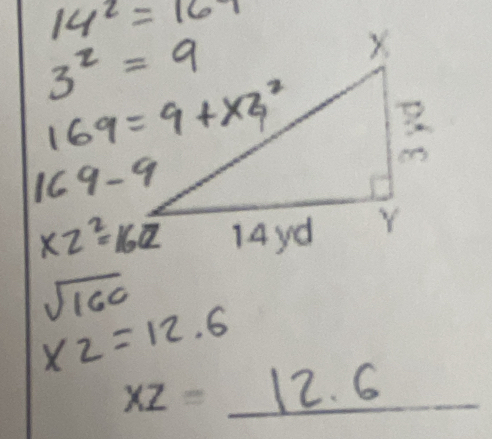 14² = 169
3² = 9
169 = 9 + XZ²
169 - 9
XZ² = 160
√160
XZ = 12.6
XZ = 12.6
X
3 yd
Y
14 yd
Z